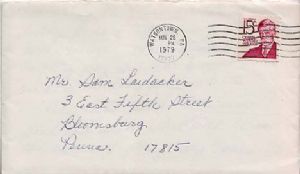 WATSONTOWN, PA
NOV 26
PM
1979
15c
Mr. Sam Laidacker
3 East Fifth Street
Bloomsburg
Penna. 17815